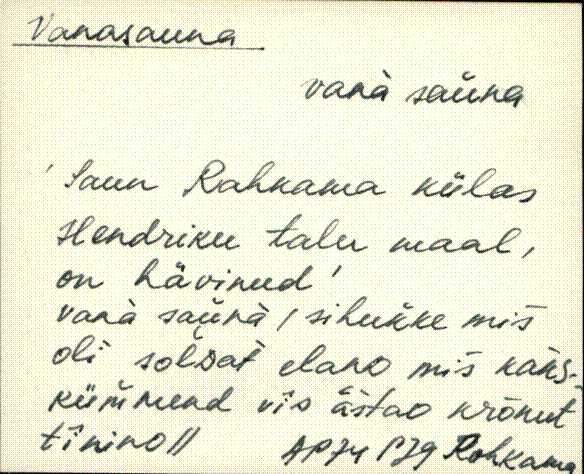 Vanasauna
vanà saùna
'Saun Rahkama külas
Hendriku talu maal,
on hävinud'
vanà saùnà / sihukke mis
oli soldat elano mis kaks-
kümmend vîs āstao krōnut
tīnino //
AP74 PJ9 Rohkama